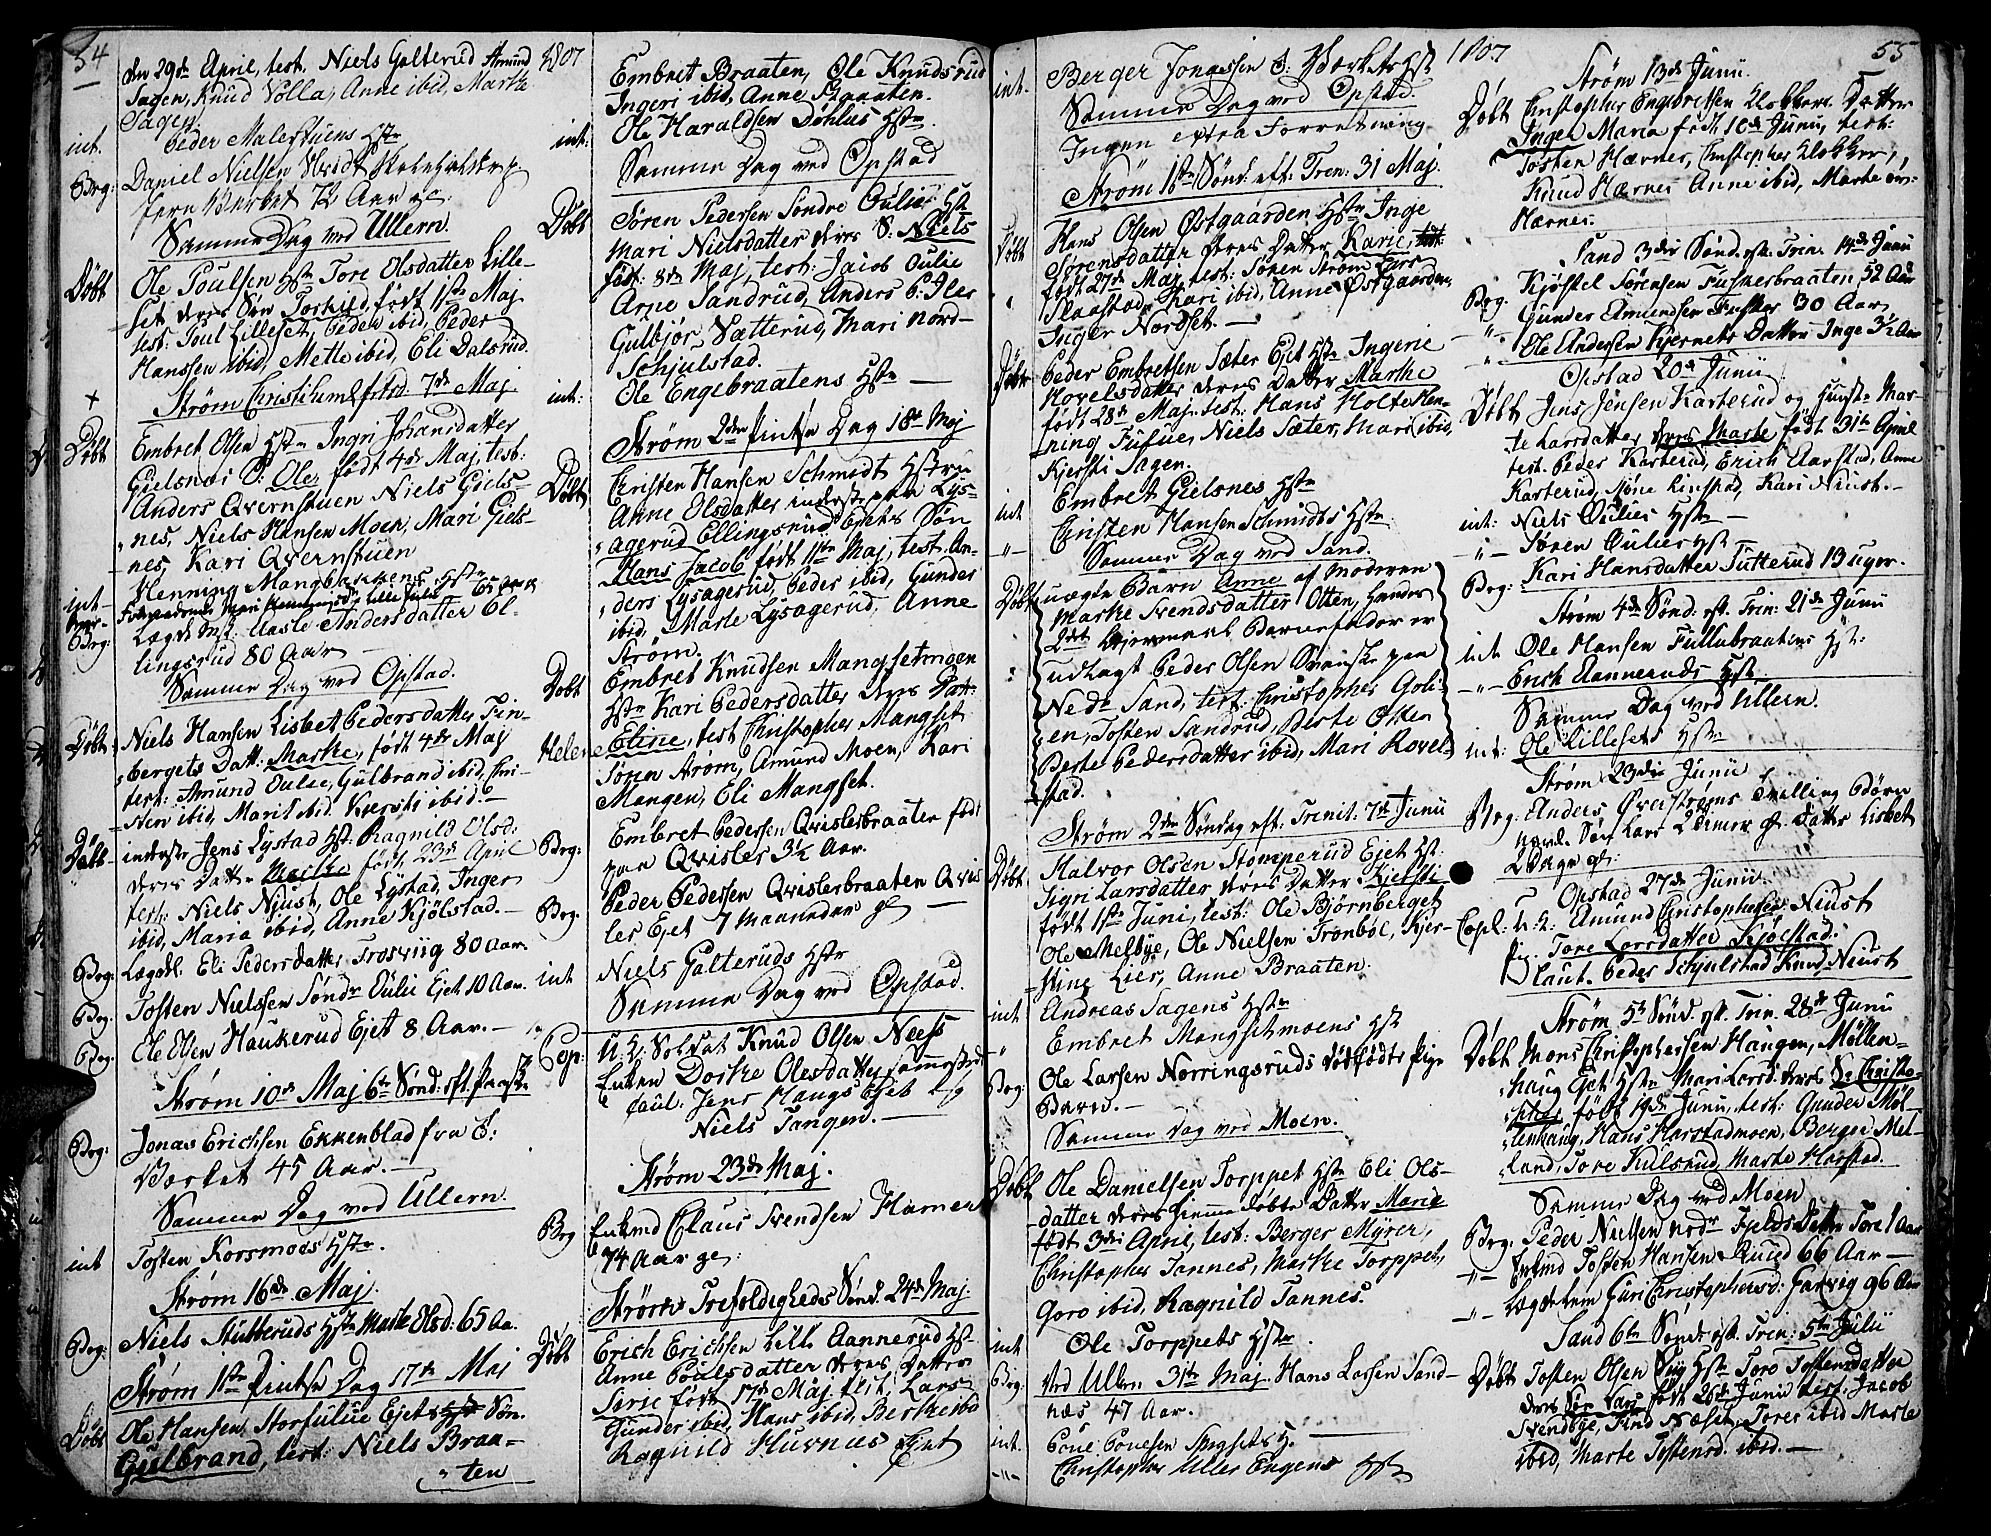 54
den 29de April, test. Niels Galterud Amund
Sagen, Knud Volla, Anne ibid, Marthe
Sagen.
int. Peder Malerstuens Hstr
Beg: Daniel Nielsen
fern Værket 72 Aar gl.
Samme Dag ved Ullern.
Døbt Ole Poulsen Hstr Tore Olsdatter Lille-
set deres Søn Torkild, født 1ste Maj
test: Poul Lilleset, Peder ibid, Peder
Hanssen ibid, Mette ibid, Eli Dalsrud.
Strøm Christi Himlf:rtsd. 7de Maj.
Døbt Embret Olsen Hstr Ingri Johansdatter
Gielsnæs S: Ole, født 4de Maj, test:
Anders Qvernstuen Niels Giels-
nes, Niels Hansen Moen, Mari Giels-
nes, Kari Qvernstuen
int- Henning Mangbakkens Hstr
Beg: Lægds M: Aasle Andersdatter El-
lingsrud 80 Aar
Samme Dag ved Opstad.
Døbt Niels Hansen Lisbet Pedersdatter Fin-
bergets Datt: Marthe, født 4de Maj
test: Amund Oulie, Gulbrand ibid, Chri-
sten ibid, Marit ibid. Kiersti ibid. –
Døbt inderste Jens Lystad Hst: Ragnild Olsd:
deres Datter Marthe født 23de April
test: Niels Njust, Ole Lystad, Inger
ibid, Maria ibid, Anne Kjölstad. –
Beg: Lægdl. Eli Pedersdatter Trosviig 80 Aar.
Beg. Tosten Nielsen Søndr Oulie Ejet 10 Aar.
Beg: Ole Olsen Haukerud Ejet 8 Aar. –
Strøm 10de Maj 6te Sønd: eft. Paaske
Beg: Jonas Erichsen Ekkenblad fra E:
Værket 45 Aar. –
Samme Dag ved Ullern.
int Tosten Korsmoes Hstr.
Strøm 16de Maj.
Beg: Niels Stutteruds Hstr Marthe Olsd: 65 Aa.
Strøm 1ste Pintse Dag 17de Maj
Døbt Ole Hansen Storfulue Ejets Søn
Gulbrand, test: Niels Braa-
ten
1807
Embret Braaten, Ole Knudsrud
Ingeri ibid, Anne Braaten.
int: Ole Haraldsen Døhlus Hstr.
Samme Dag ved Opstad
Døbt Søren Pedersen Søndre Oulies Hstr
Mari Nielsdatter deres S: Niels
født: 8de Maj, test: Jacob Oulie
Arne Sandrud, Anders
Gulbjør Sætterud, Mari Nord-
Schjulstad.
int: Ole Engebraatens Hstr –
Strøm 2den Pintse Dag 18de Maj
Døbt Christen Hansen Schmidt Hstru
Anne Olsdatter inderste paa Lys-
agerud Ellingsrud Ejets Søn
Hans Jacob født 11te Maj, test. An-
ders Lysagerud, Peder ibid, Gunder
ibid, Marte Lysagerud, Anne
Strøm.
Døbt Embret Knudsen Mangsetmoen
Hstr Kari Pedersdatter deres Dat:
Helene Eline, test Christopher Mangset
Sønen Strøm, Amund Moen, Kari
Mangen, Eli Mangset.
Beg: Embret Pedersen Qvislerbraaten født
paa Qvisler 3½ Aar.
Beg: Peder Pedersen Qvislerbraaten Qvis
ler Ejet 7 Maaneder gl –
int Niels Galteruds Hstr
Samme Dag ved Opstad.
Cop: U: K: Soldat Knud Olsen Neess
Enken Dorthe Olesdatter sammested
Caut: Jens Haugs Ejet og
Niels Tangen. –
Strøm 23de Maj.
Beg Enkmd Claus Svendsen Hamer
74 Aar gl:
Strøms Trefoldigheds Sønd. 24de Maj.
Døbt Erich Erichsen Lille Aannerud Hst-
Anne Poulsdatter deres Datter
Sirie født 17de Maj. test: Lars
Gunder ibid, Hans ibid, Berthe ibid
Ragnild Hurnæs Ejet
1807
int. Berger Jonassen E: Værkets Hst
Samme Dag ved Opstad.
Ingen extra Forretning
Strøm 1ste Sønd: eft: Tren: 31 Maj.
Døbt Hans Olsen Østgaarden Hstr Inge
Sørensdatter deres Datter Karie,
født 27de Maj test: Søren Strøm Lars
Plaastad, Kari ibid, Anne Østgaarden,
Inger Nordset. –
Døbt Peder Embretsen Sæter Ejet Hstr Ingerie
Hovelsdatter deres Datter Marthe
født 28de Maj. test: Hans Holte Hen-
ning Fufue, Niels Sæter, Mari ibid,
Kjersti Sagen.
int Embret Gielsnes Hstr
–"– Christen Hansen Schmidts Hstr
Samme Dag ved Sand.
Døbt uægte Barn Anne af Moderen
Marthe Svendsdatter Otten, hendes
2det Lejermaal Barnefader er
udlagt Peder Olsen Svenske paa
Nedr Sand, test. Christopher Goli-
en, Tosten Sandrud, Berte Otten
Berte Pedersdatter ibid, Mari Rovel-
stad.
Strøm 2den Søndag eft. Trinit. 7de Junii
Døbt Halvor Olsen Stomperud Ejet Hst:
Sigri Larsdatter deres Datter Kjersti
født 1ste Juni, test: Ole Bjørnberget
Ole Melbye, Ole Nielsen Tronbøl, Kjer-
stine Lier, Anne Braaten.
int Andreas Sagens Hstr
–"– Embret Mangsetmoens Hst
Beg: Ole Larsen Norringsruds dødfødte Pige
Barn. –
Samme Dag ved Moen.
Døbt Ole Danielsen Torppet Hstr Eli Ols-
datter deres hiemme døbte Datter Marie
født 3die April, test: Berger Myrer,
Christopher Tannes, Marthe Torppet,
Goro ibid, Ragnild Tannes
int Ole Torppets Hstr.
Beg: Ved Ullern 31te Maj. Hans Larsen Sand-
næs 47 Aar.
int. Poul Povelsen Hst. –
–"– Christopher Uller Engens Hstr
55
Strøm 13de Junii.
Døbt Christopher Engebretsen Klokkers Datter
Inger Maria født 10de Junii, test:
Tosten Hærnes, Christopher Klokker,
Knud Hærnes Anne ibid, Marthe
Hærnes.
Sand 3die Sønd. eft. Trin. 14de Junii
Beg. Kjøstel Sørensen Fuskerbraaten 52 Aar
–"– Gunder Amundsen Fusker 30 Aar,
" Ole Andersen Kjernets Datter Inge 3½ Aar
Opstad 20de Junii
Døbt Jens Jensen Karterud og Hustr Mar-
te Larsdatter deres Marthe født 31te April
test. Peder Karterud, Erich Aarstad, Anne
Karterud, Kari Niust. –
int: Niels Oulies Hstr –
–"– Søren Oulies Hst
Beg: Kari Hansdatter Tutterud 13 uger.
Strøm 4de Sønd. eft. Trin: 21de Junii
int Ole Hansen Fullubraatens Hst:
–"– Erich Aanneruds Hst
Samme Dag ved Ullern.
int: Ole Lillesets Hstr
Strøm 23die Junii
Beg. Anders Øverstrøms Tvilling Børn
navnl. Søn Lars gl. Datter Lisbet
2 Dage gl:
Opstad 27de Junii
Copl: U. K: Amund Christophersen Niust
Pig. Tore Larsdatter Skjølstad:
Caut. Peder Schjulstad Knud Niust
Strøm 5te Sønd. eft. Trin. 28de Junii
Døbt Mons Christophersen Haugen, Møllen-
haug Ejet Hstr Mari Larsd. deres S: Christo-
pher, født 19de Junii, test: Gunder Møl-
lenhaug, Hans Harstadmoen, Berger Mel-
land, Tore Kulsrud, Marthe Harstad.
Samme Dag ved Moen
Beg: Peder Nielsen Nordr Fjelds Datter Tore 1 Aar
–"– Enkmd Tosten Hansen Ruud 66 Aar –
–"– Lægdslem Guri Christophersd: Garvig 96 Aar
Sand 6te Sønd. eft. Tren: 5te Julii
Døbt Tosten Olsen Hstr Toro Tostensdatter
deres Søn Lars født 28de Junii test. Jacob
Svendbye, Find Næset, Tores ibid Marthe
ibid, Marte Tostensd. ibid. –